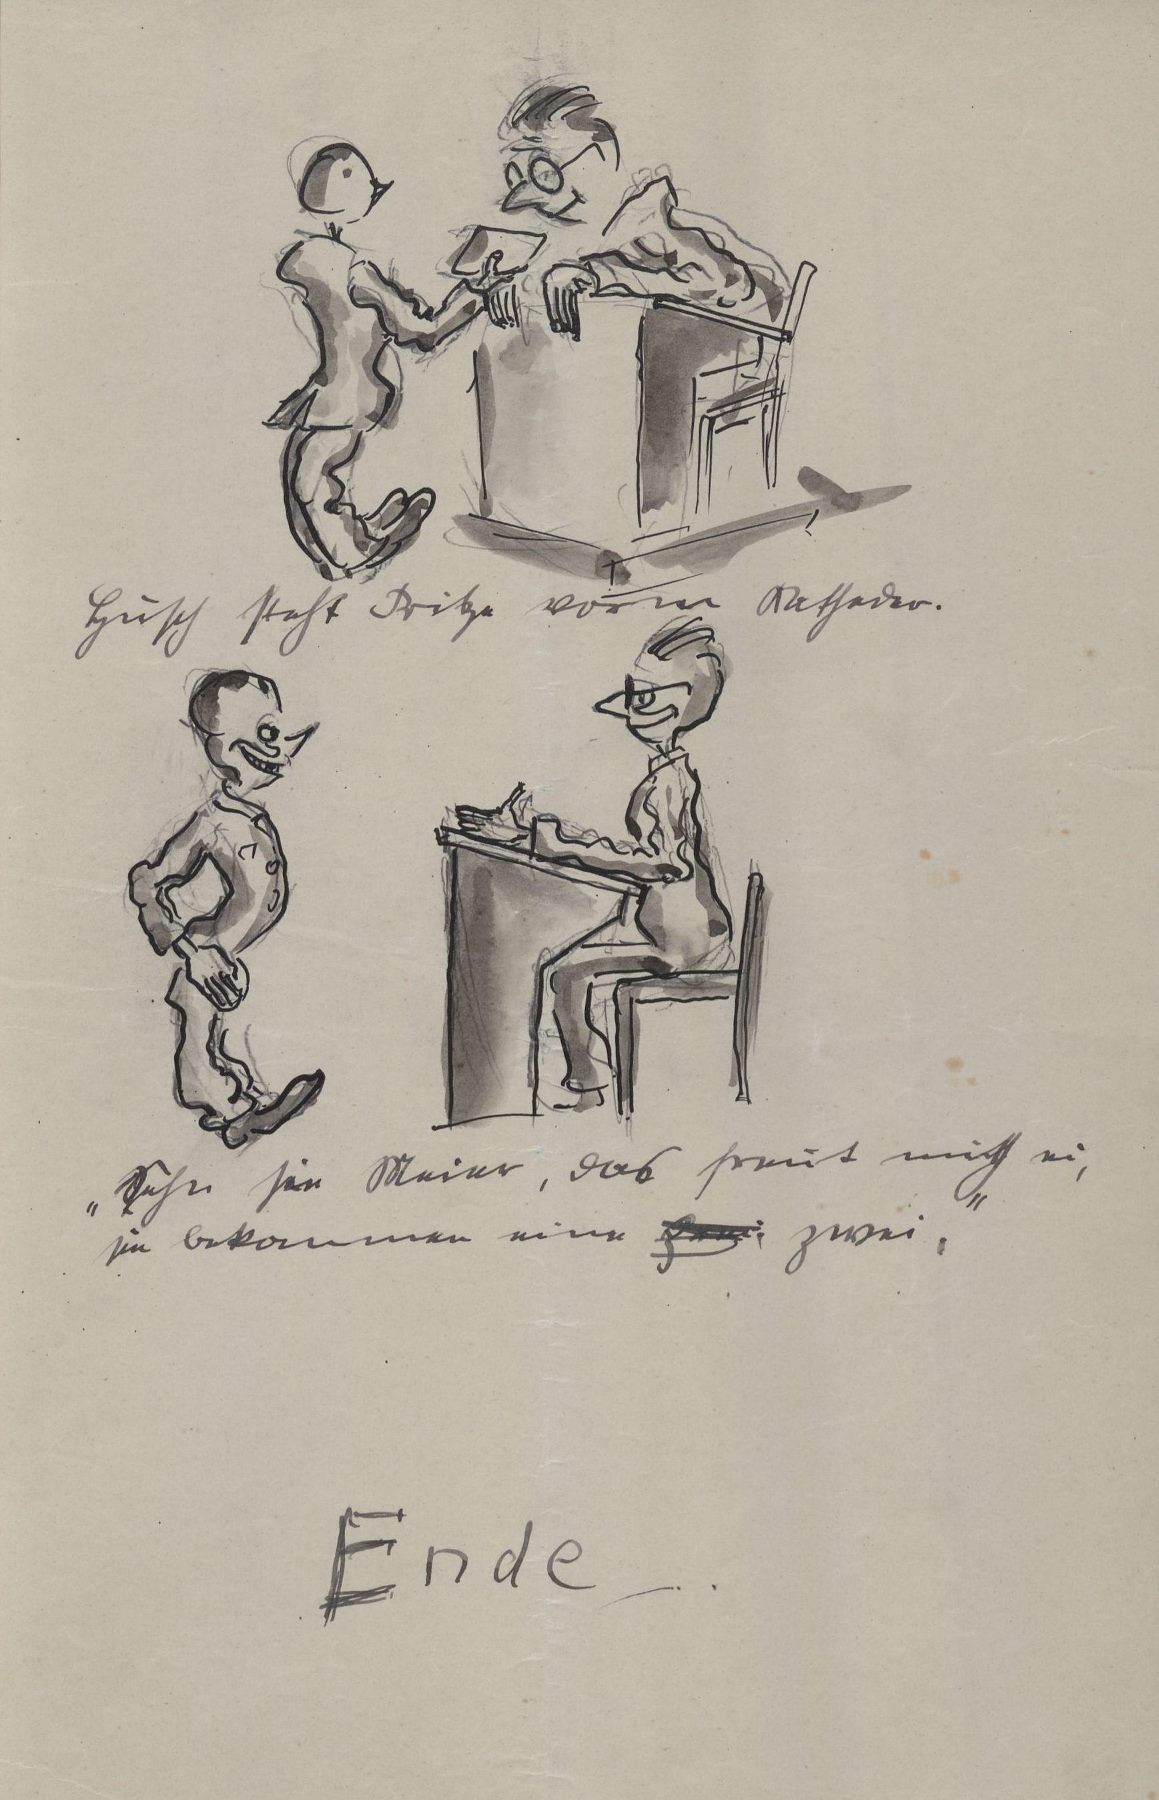 Husch steht Fritze vorm Katheder.
„Sehn sie Meier, das freut mich ei,
sie bekommen eine zwei."
Ende